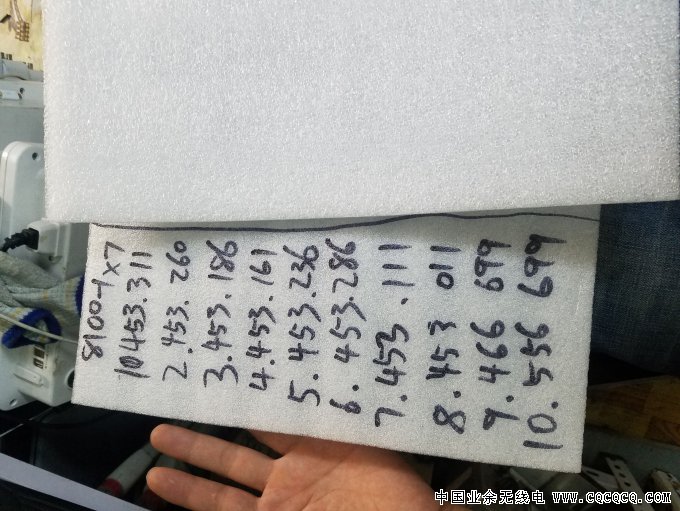 8100-1×7
10453.311
2.453.260
3.453.186
4.453.161
5.453.236
6.453.286
7.453.111
8.453 011
9.466 699
10.556 699
中国业余无线电 www.cqcqcq.com